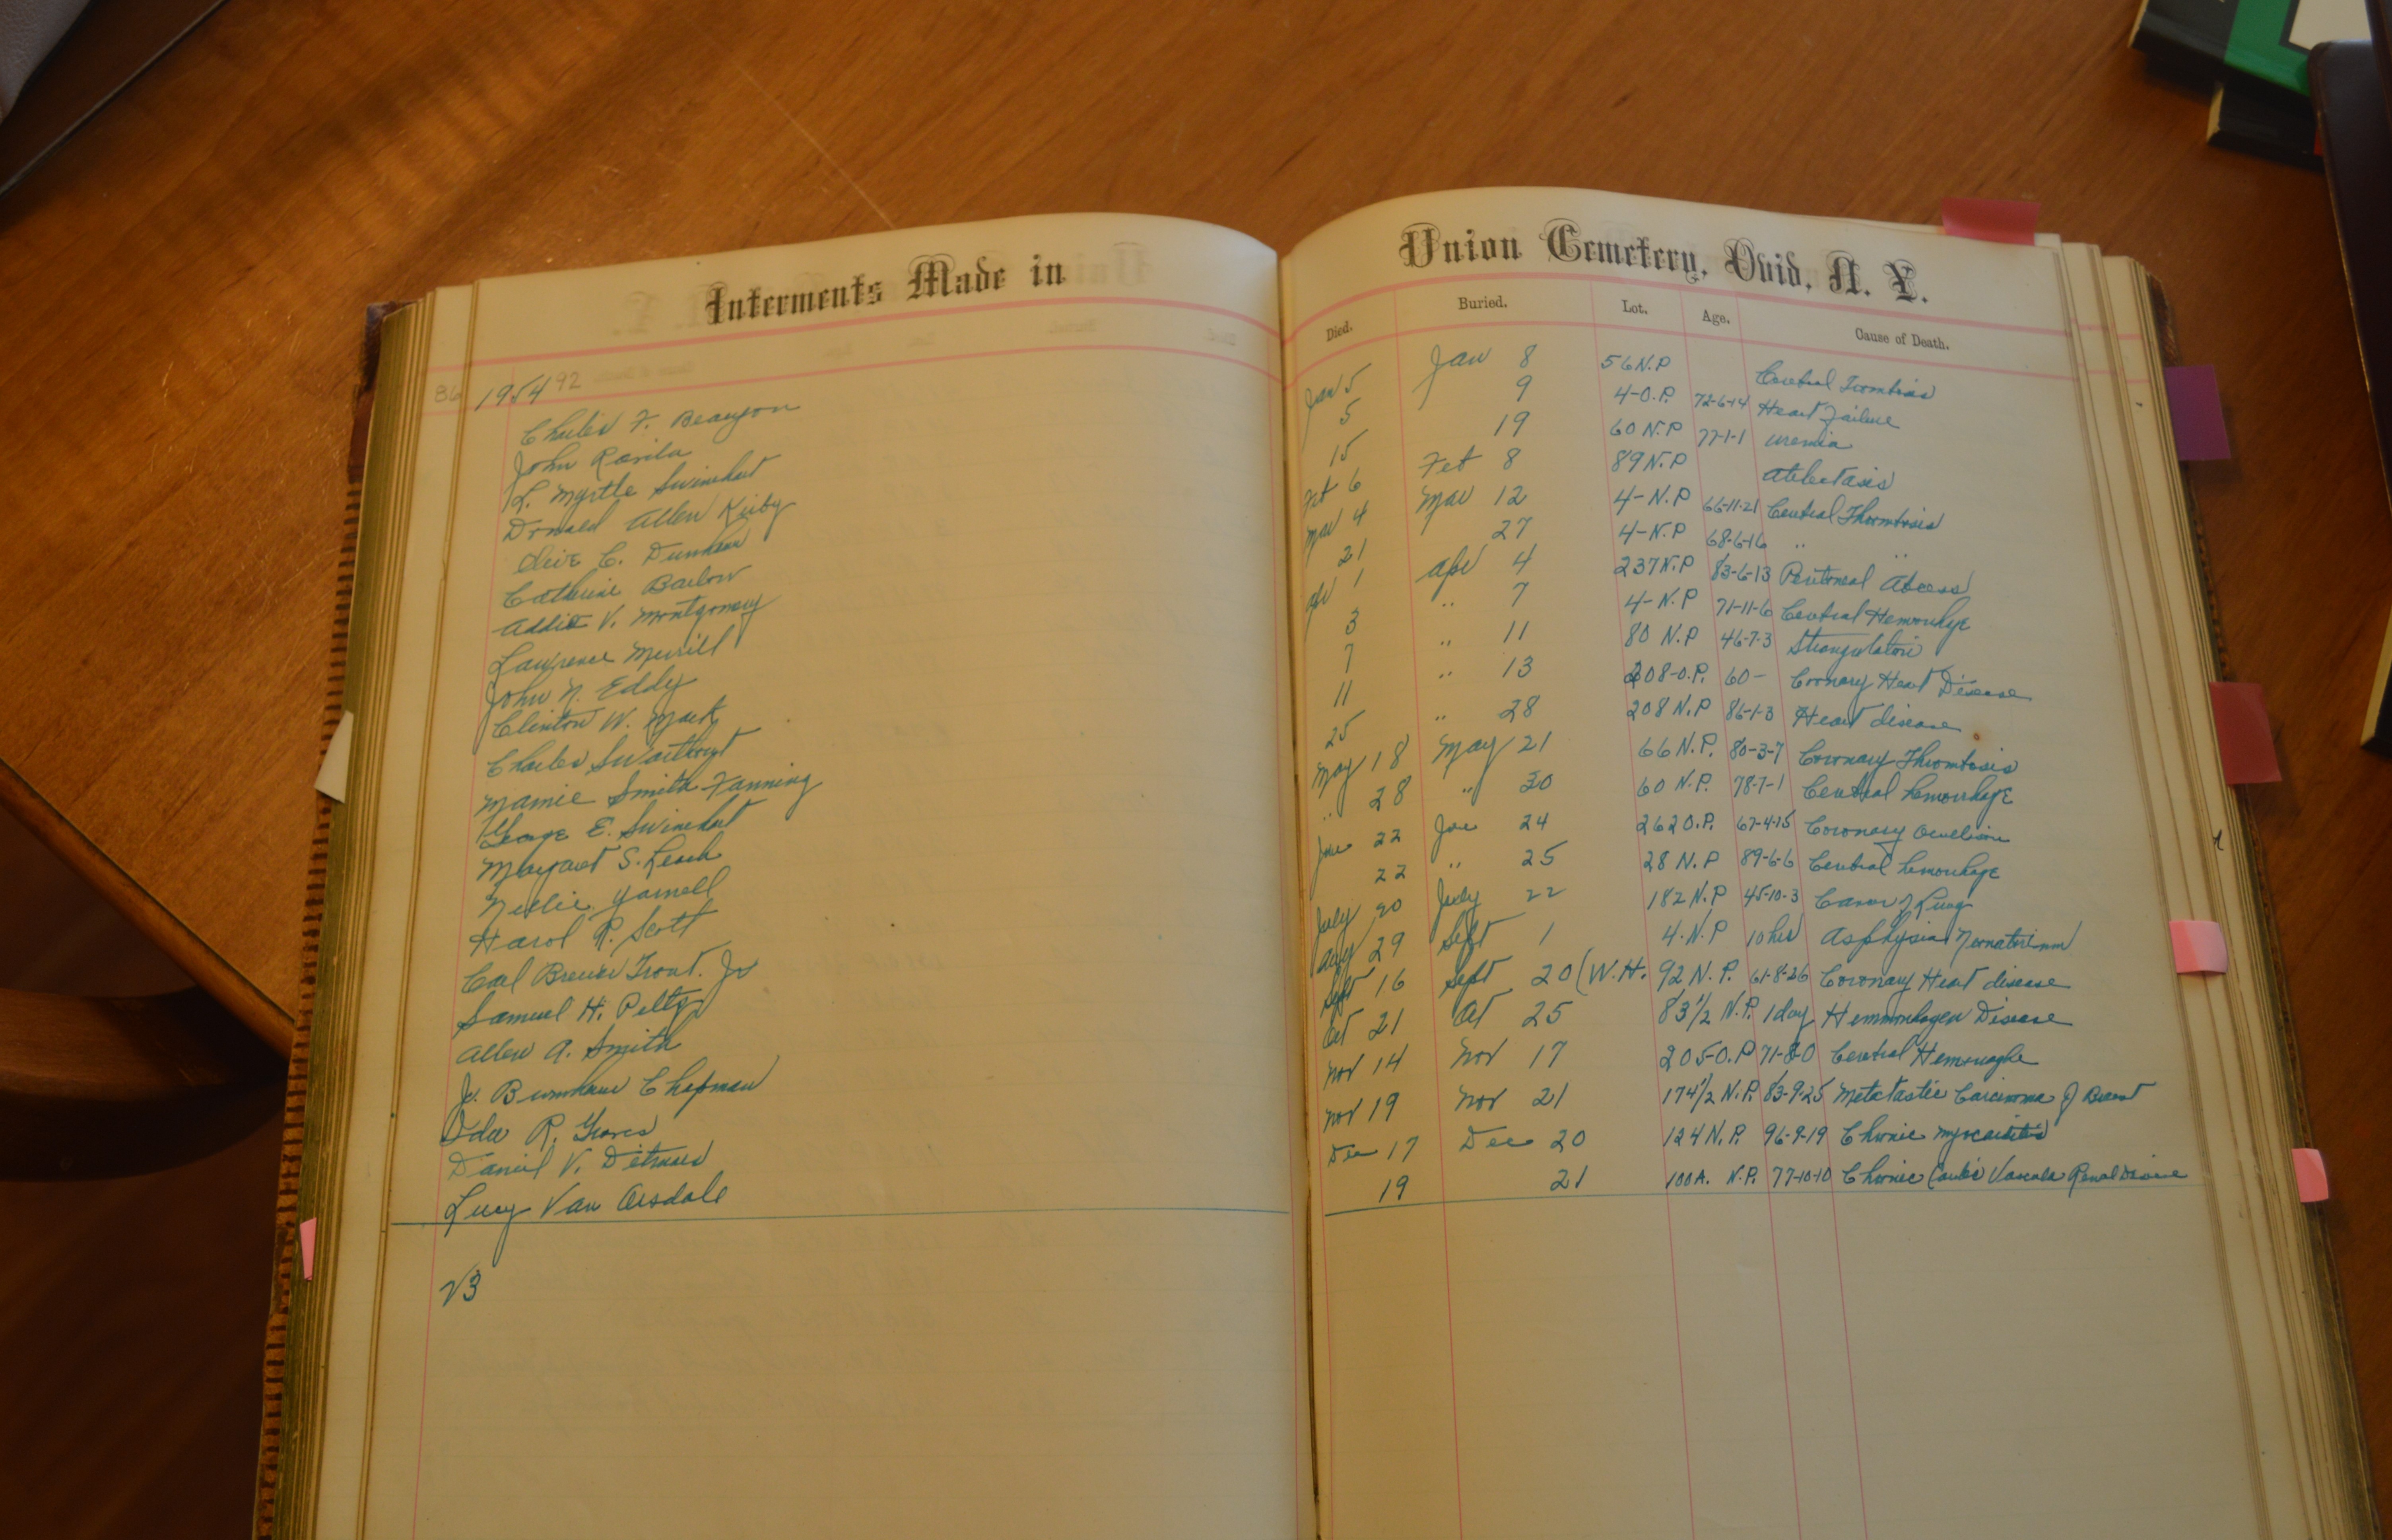 Interments Made in
86 1954 92
Charles F. Beaujon
John
L. Myrtle Swinehart
Donald Allen Kirby
Olive C. Dunham
Catherine Barlow
Addie V. Montgomery
Lawrence Merrill
John N. Eddy
Clinton W. Mack
Charles Swarthout
Mamie Smith Fanning
George E. Swinehart
Margaret S. Leach
Nellie Yarnell
Harol P. Scott
Carl Brewer Trout. Jr
Samuel H. Pelty
Allen A. Smith
Jr. Burnham Chapman
Ida R. Graves
Daniel V.
Lucy Van Arsdale
23
Union Cemetery, Ovid, N. Y.
Died. Buried. Lot. Age. Cause of Death.
Jan 5 Jan 8 56 N.P
5 9 4-O.P. 72-6-14 Heart Failure
15 19 60 N.P 77-1-1 uremia
Feb 6 Feb 8 89 N.P Atelectasis
Mar 4 Mar 12 4-N.P 66-11-21 Cerebral Thrombosis
21 27 4-N.P 68-6-16 " "
Apr 1 Apr 4 237 N.P 83-6-13 Peritoneal Abcess
3 " 7 4-N.P 71-11-6 Cerebral Hemorrhage
7 " 11 80 N.P 46-7-3 Strangulation
11 " 13 208-O.P. 60- Coronary Heart Disease
25 " 28 208 N.P 86-1-3 Heart disease
May 18 May 21 66 N.P. 80-3-7 Coronary Thrombosis
" 28 " 30 60 N.P. 78-7-1 Cerebral hemorrhage
June 22 June 24 262 O.P. 67-4-15 Coronary Occulsion
22 " 25 28 N.P 89-6-6 Cerebral hemorrhage
July 20 July 22 182 N.P 45-10-3 Cancer of Lung
Aug 29 Sept 1 4-N.P 10 hrs Asphyxia Neonatorium
Sept 16 Sept 20 (W.H. 92 N.P. 61-8-26 Coronary Heart disease
Oct 21 Oct 25 83 1/2 N.P. 1 day Hemmorhagen Disease
Nov 14 Nov 17 205-O.P 71-8-0 Cerebral Hemoraghe
Nov 19 Nov 21 174 1/2 N.P. 83-9-25 Metatastic Carcinoma of Breast
Dec 17 Dec 20 124 N.P. 96-9-19 Chronic Myocarditis
19 21 100A. N.P. 77-10-10 Chronic Cardio Vascular Renal Disease